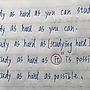 dy as hard as you can study
rd as you can.
udy as hard as studying hard
dy as hard as it is possible
rd as possible.